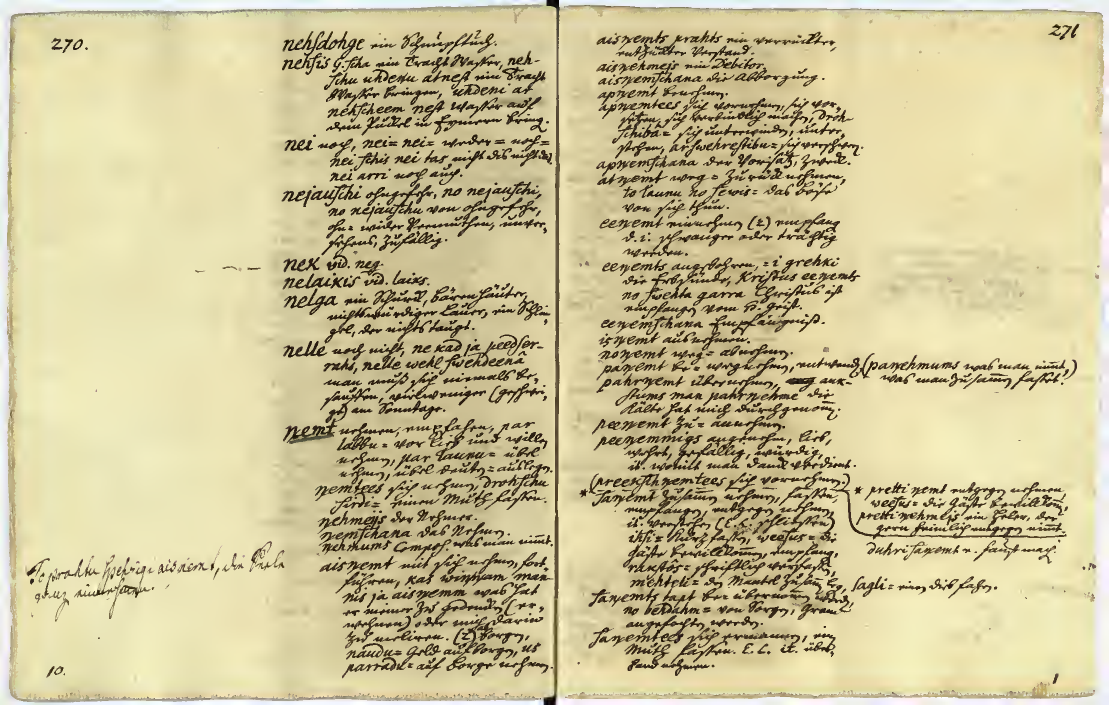 270.
nehsdohgs ein Schnupftuch.
nehsis G. scha ein Tracht Wasser, neh-
schu uhdenu atnest ein Tracht
Wasser bringen, uhdeni at
nehscheem nest Wasser auf
dem Puckel in Eymern bring.
nei noch, nei= nei= weder= noch=
nei schis nei tas nicht dis nicht das
nei arri noch auch.
nejauschi ohngefehr, no nejauschi,
no nejauschu von ohngefehr,
ohn= wider Vermuthen, unver-
sehens, zufällig.
nek vid. neg.
nelaikis vid. laiks.
nelga ein Schurck, bärenhäuter,
nichtswürdiger Lauer, ein Schlin-
gel, der nichts taugt.
nelle noch nicht, ne kad ja peedser-
rahs, nelle wehl swehdeenâ
man muß sich niemals be-
sauffen, vielweniger (geschwei-
ge) am Sonntage.
nemt nehmen, empfahen, par
labbu= vor lieb und willen
nehmen, par launu= übel
nehmen, übel deuten= auslegen.
nemtees sich nehmen, drohschu
sirdi= einen Muth fassen.
nehmejs der Nehmer.
nemschana das Nehmen.
nehmums Compos. was man nimt.
aisnemt mit sich nehmen, fort-
führen, kas winnam man-
nis ja aisnemm was hat
er meiner zu gedencken (er-
wehnen) oder mich darin
zu meliren. (2) borgen,
naudu= Geld aufborgen, us
parradu= auf borge nehmen.
To prahtu spehzigi aisnemt, die Seele
ganz einnehmen.
10.
271
aisnemts prahts ein verrückter,
entzückter Verstand.
aisnehmejs ein Debitor.
aisnemschana die Abborgung.
apnemt benehmen.
apnemtees sich vornehmen, sich vor-
setzen, sich verbindlich machen, droh-
schibâ= sich unterwinden, unter-
stehen, ar swehrestibu= sich verschwer.
apnemschana der Vorsatz, Zweck.
atnemt weg= zurück nehmen,
to launu no sewis= das böse
von sich thun.
eenemt einnehmen (2) empfang
d. i. schwanger oder trächtig
werden.
eenemts angebohren, =i grehki
die Erbsünde, Kristus eenemts
no swehta garra Christus ist
empfangen vom H. Geist.
eenemschana Empfängniß.
isnemt ausnehmen.
nonemt weg= abnehmen.
panemt be= wegnehmen, entwend. (panehmums was man nimt,
was man zusamm fasset.)
pahrnemt übernehmen, auk-
stums man pahrnehme die
Kälte hat mich durchgenom.
peenemt zu= annehmen.
peenemmigs angenehm, lieb,
wehrt, gefällig, würdig,
it. womit man Danck verdient.
(preekschnemtees sich vornehmen.)
* sanemt zusamm nehmen, fassen,
empfangen, entgegen nehmen
it. verstehen (E. L. schliessen)
ihsi= kurz fassen, weesus= die
Gäste bewillkomm, empfang,
rakstôs= schriftlich verfassen,
mehteli= den Mantel zusam leg, sagli= einen dieb fassen.
* pretti nemt entgegen nehmen,
weesus= die Gäste bewillkom,
pretti nehmejs ein Heler, der
gern heimlich entgegen nimt.
duhri sanemt e. Faust mach.
sanemts tapt be= übernomm werden,
no behdahm= von Sorgen, Gram
angefochten werden.
sanemtees sich ermannen, ein
Muth fassen. E. L. it. über-
hand nehmen.
1